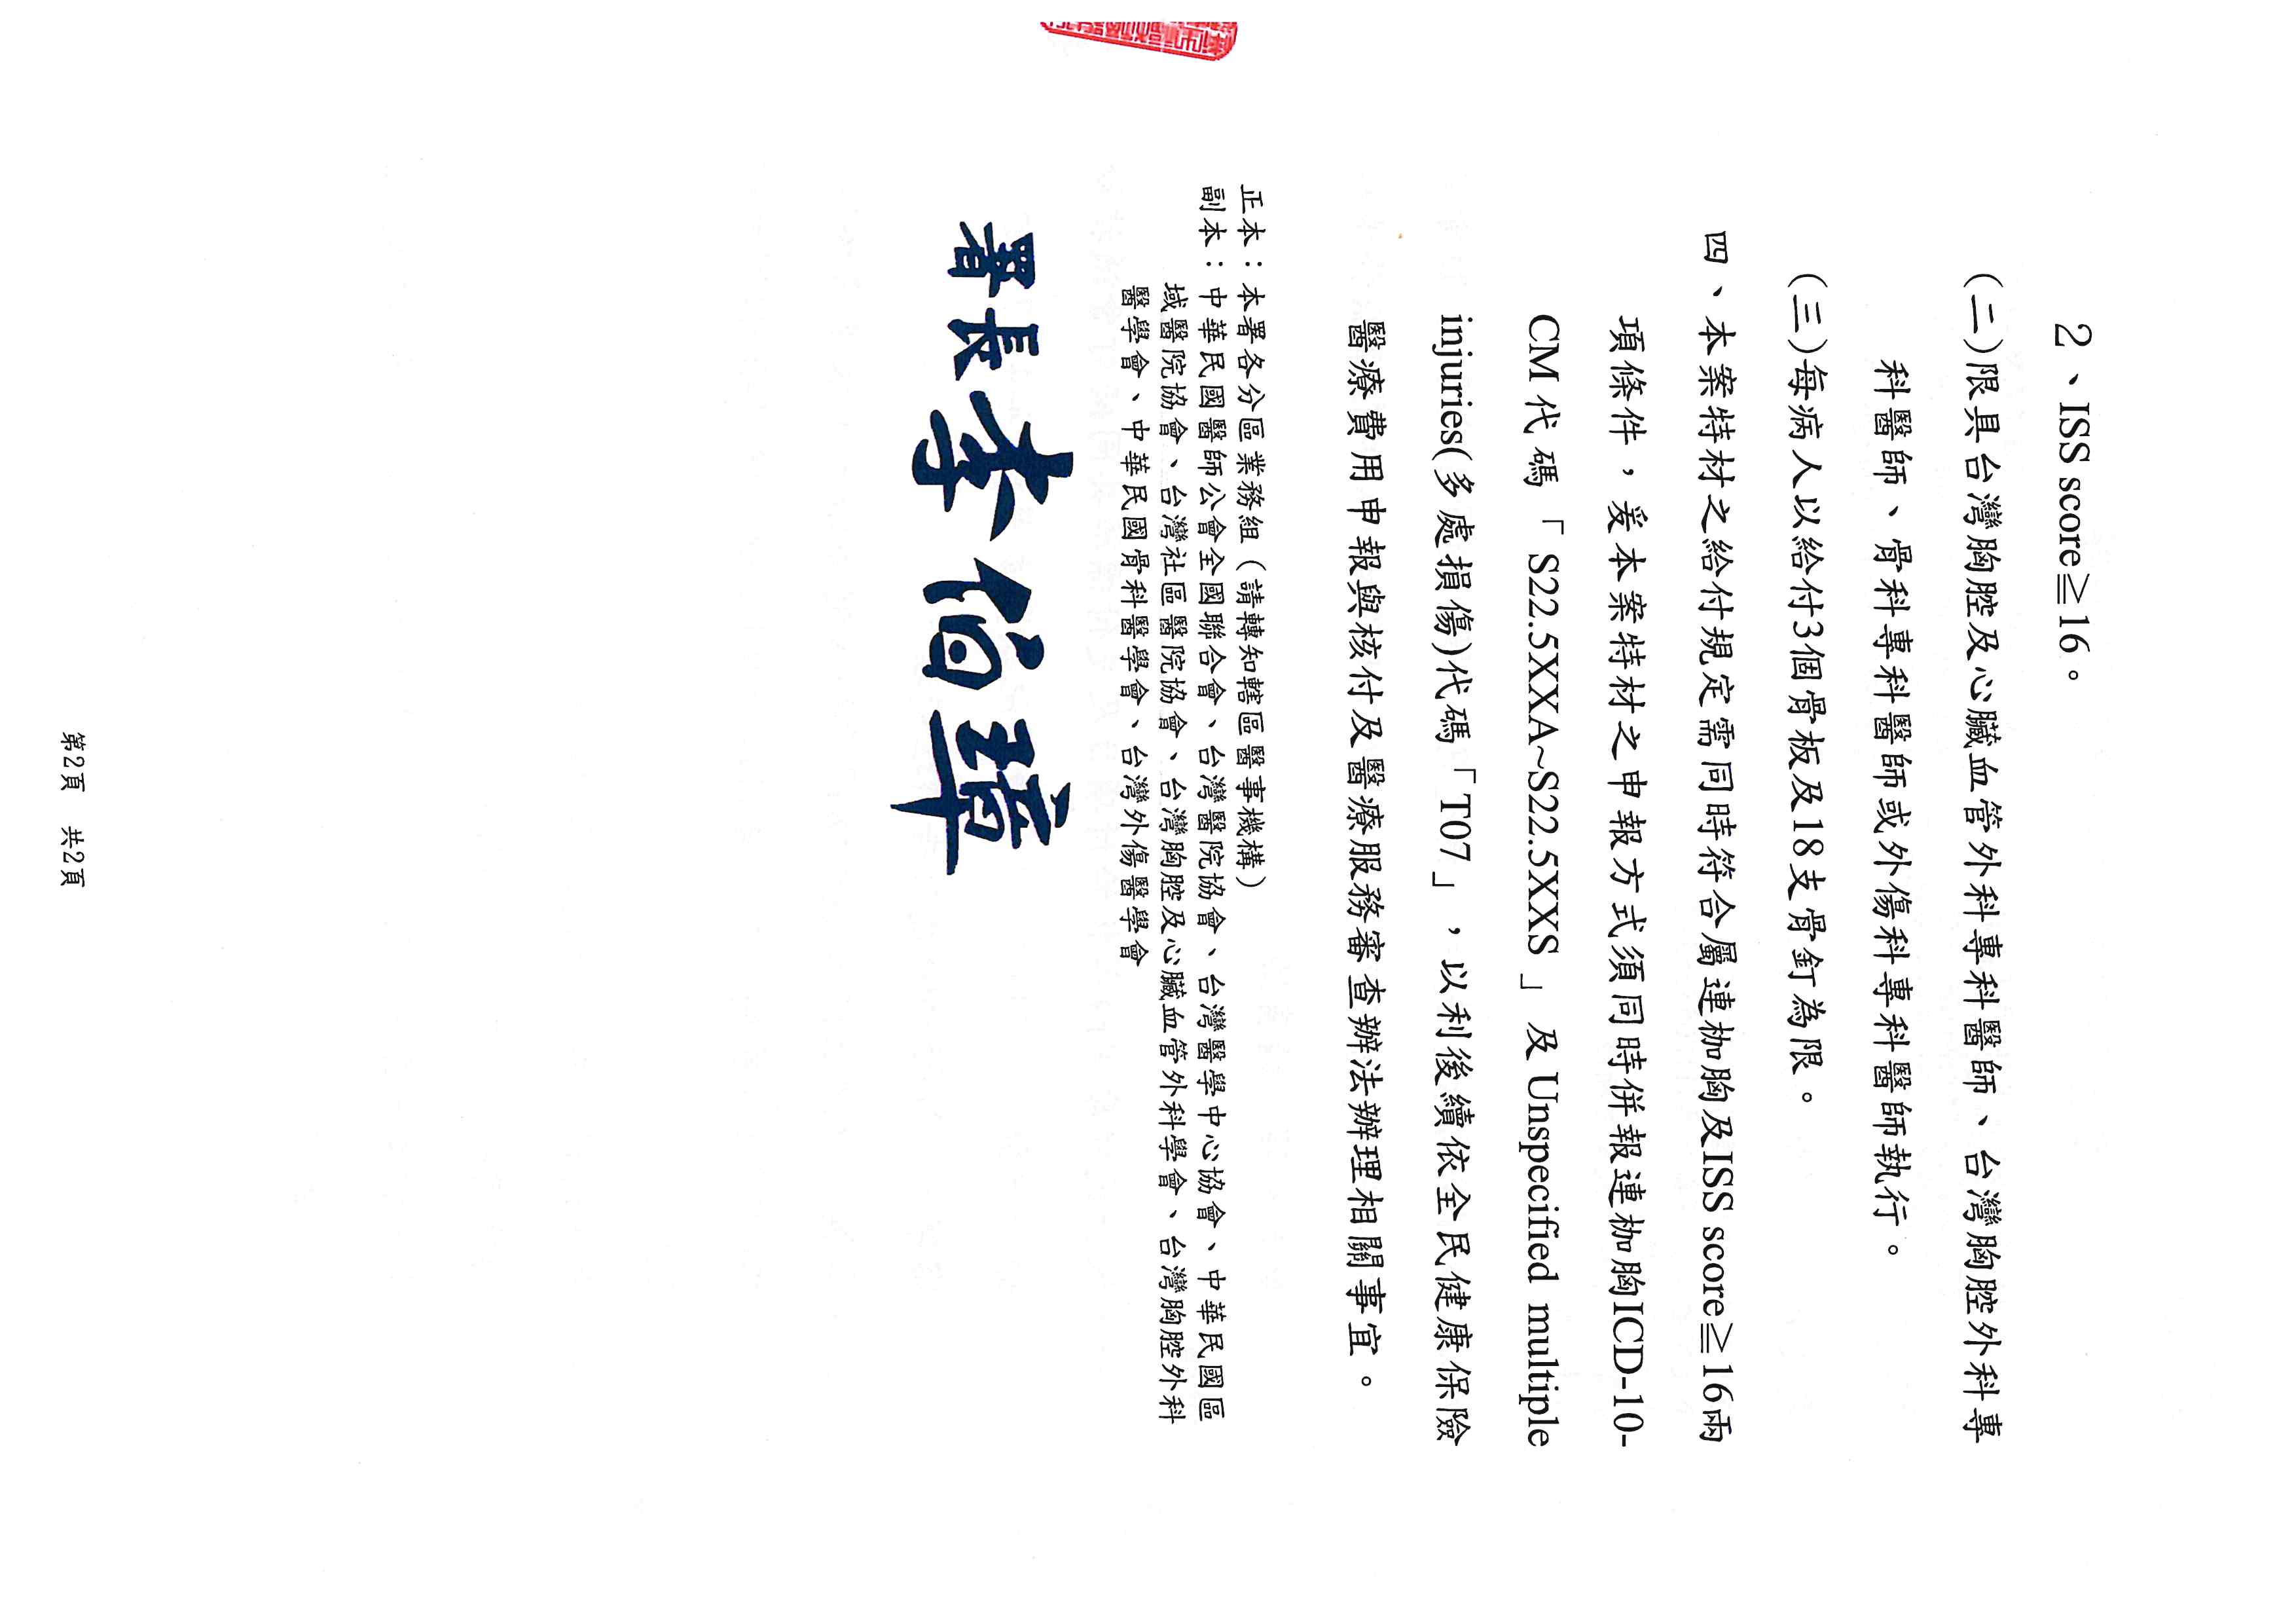 2、ISS score≧16。
(二)限具台灣胸腔及心臟血管外科專科醫師、台灣胸腔外科專
科醫師、骨科專科醫師或外傷科專科醫師執行。
(三)每病人以給付3個骨板及18支骨釘為限。
四、本案特材之給付規定需同時符合屬連枷胸及ISS score≧16兩
項條件，爰本案特材之申報方式須同時併報連枷胸ICD-10-
CM 代碼「S22.5XXA~S22.5XXS」及 Unspecified multiple
injuries(多處損傷)代碼「T07」，以利後續依全民健康保險
醫療費用申報與核付及醫療服務審查辦法辦理相關事宜。
正本：本署各分區業務組（請轉知轄區醫事機構）
副本：中華民國醫師公會全國聯合會、台灣醫院協會、台灣醫學中心協會、中華民國區
域醫院協會、台灣社區醫院協會、台灣胸腔及心臟血管外科學會、台灣胸腔外科
醫學會、中華民國骨科醫學會、台灣外傷醫學會
署長李伯璋
第2頁 共2頁